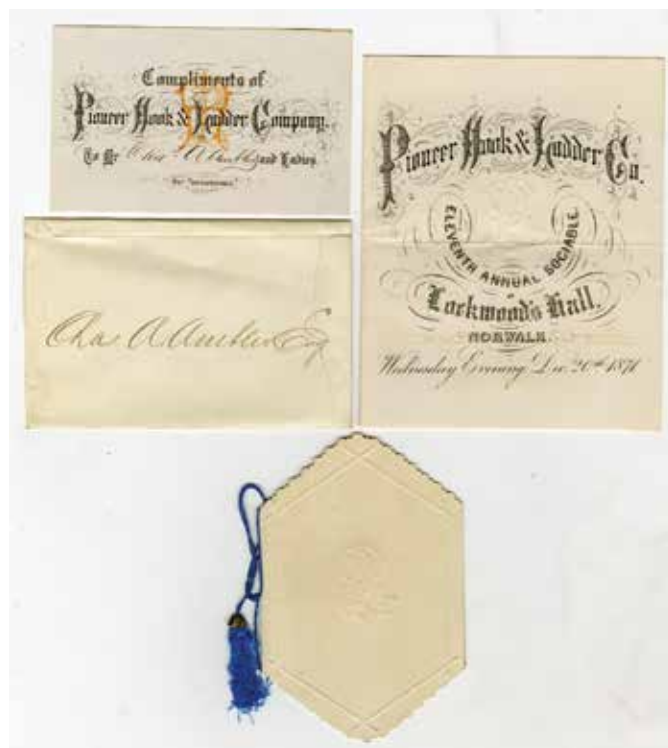 Compliments of
Pioneer Hook & Ladder Company.
To Mr Chas A Ambler and Ladies
Chas A Ambler Esq
Pioneer Hook & Ladder Co.
ELEVENTH ANNUAL SOCIABLE.
Lockwood's Hall,
NORWALK.
Wednesday Evening, Dec. 20th 1871